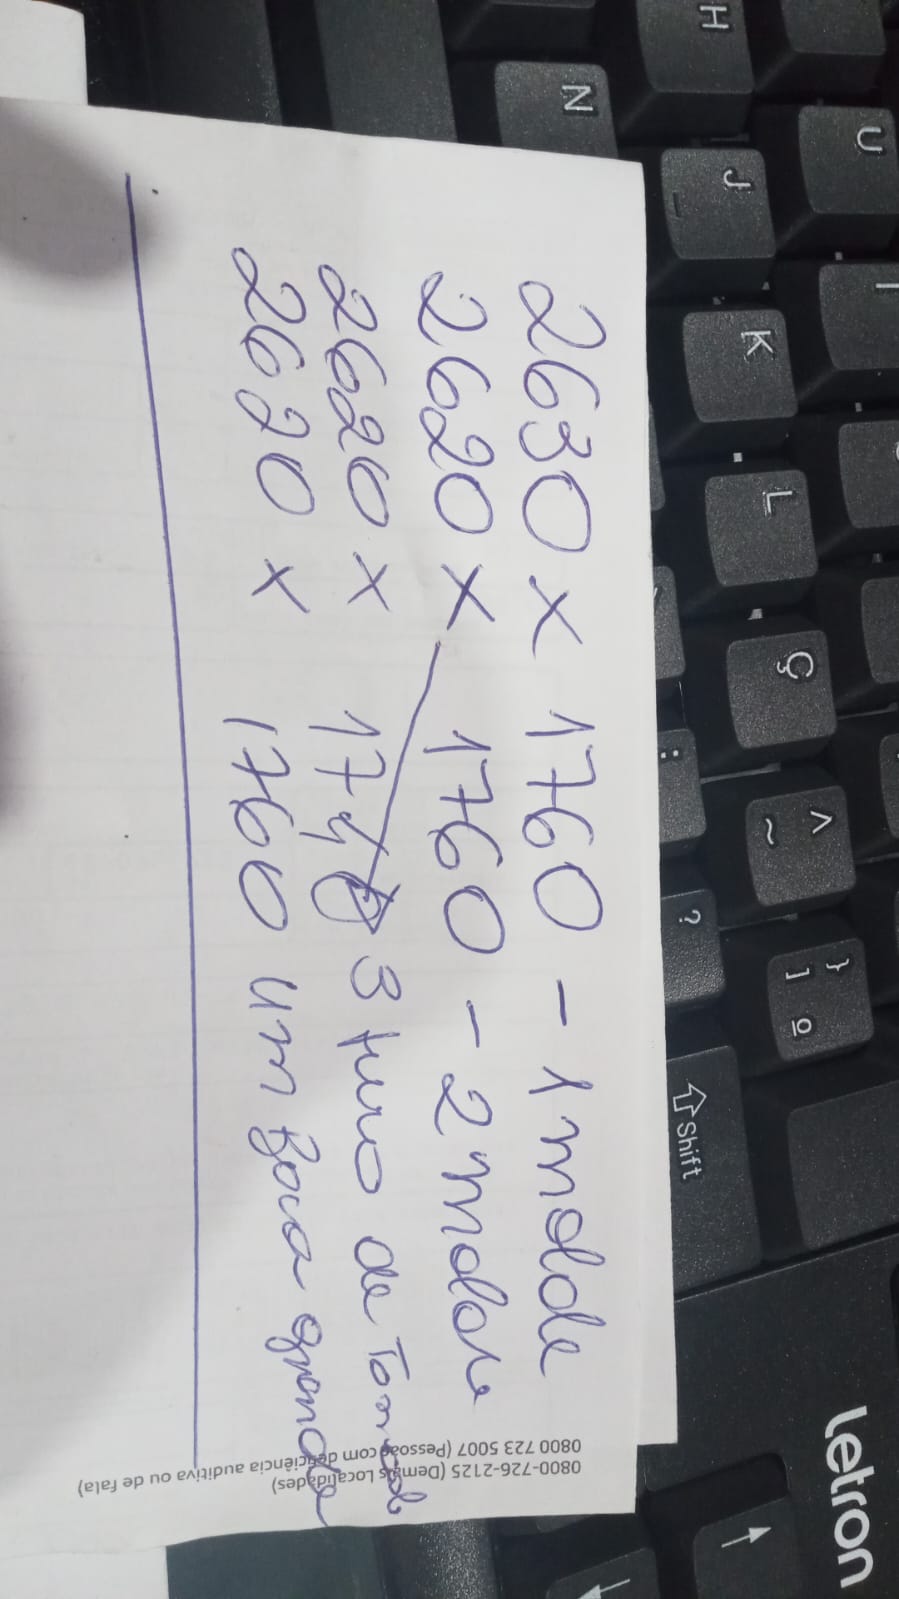 2630 x 1760 - 1 molde
2620 x 1760 - 2 molde
2620 x 1740 3 furo de Tomada
2620 x 1760 um Boca grande
0800-726-2125 (Demais Localidades)
0800 723 5007 (Pessoas com deficiência auditiva ou de fala)
H
N
U
J
I
K
L
Ç
^
~
:
?
}
]
º
Shift
letron